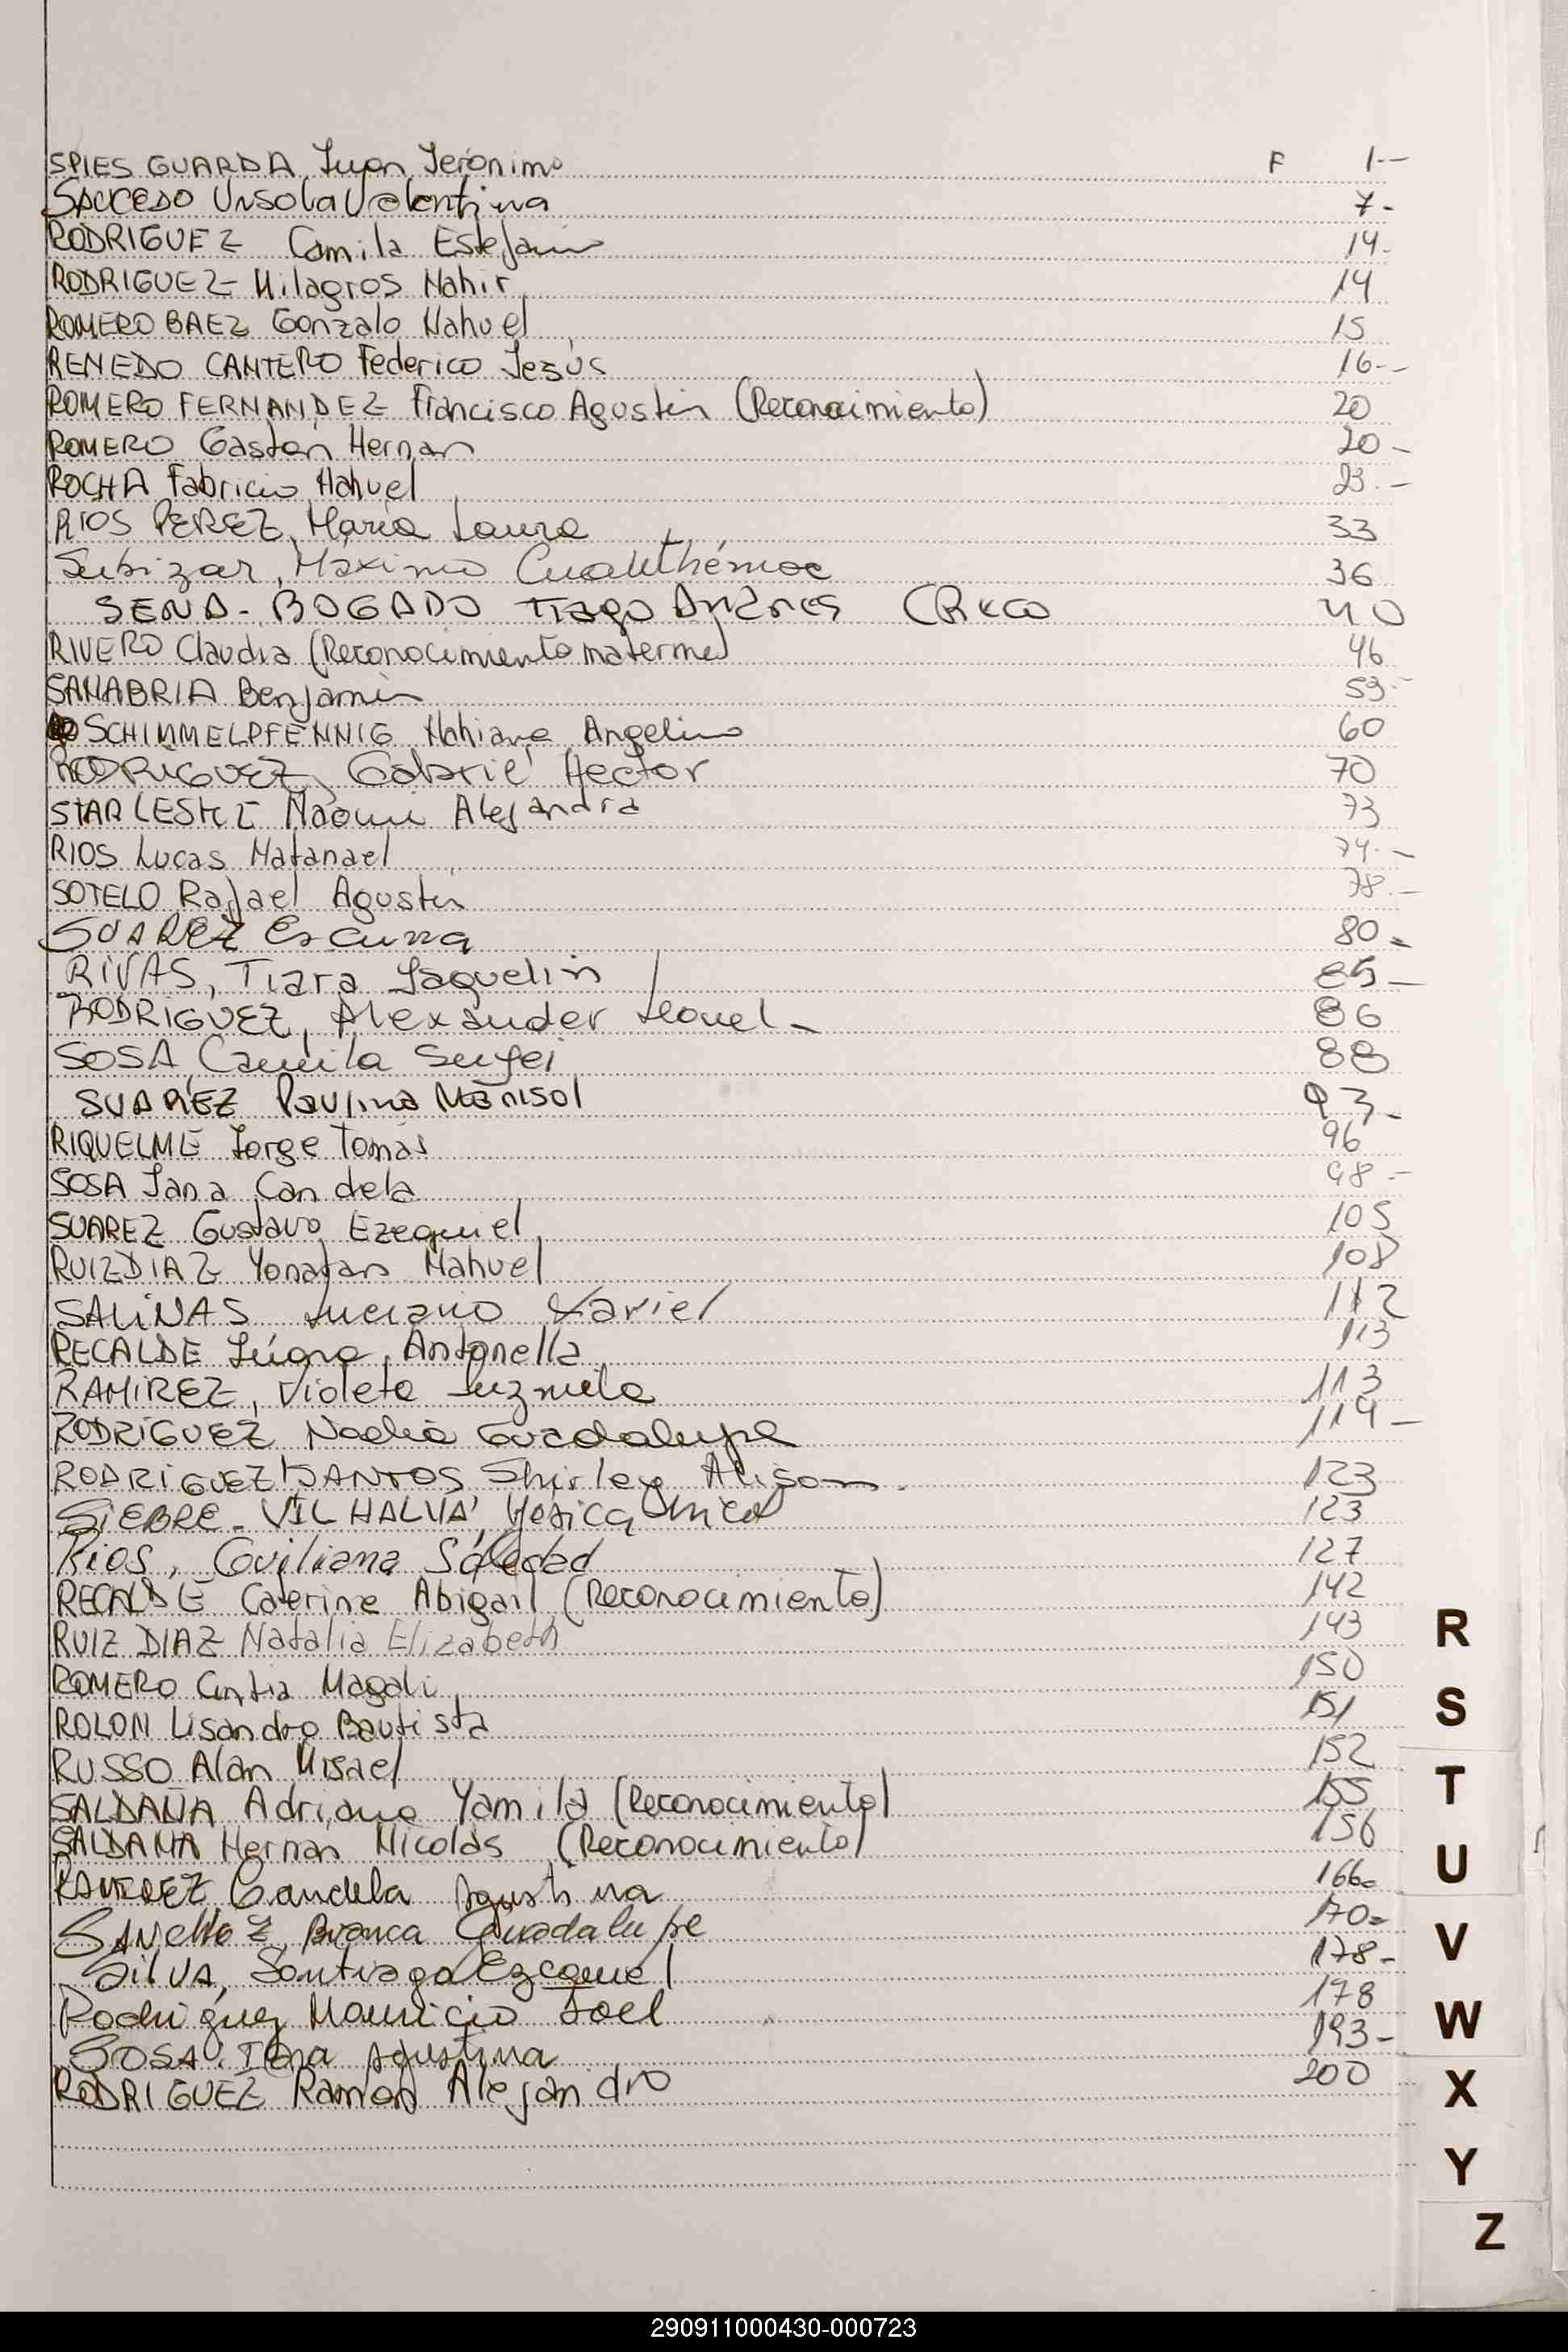 SPIES GUARDA Juan Jerónimo F 1.-
SAUCEDO Ursola Valentina 7-
RODRIGUEZ Camila Estefania 14-
RODRIGUEZ Milagros Nahir 14
ROMERO BAEZ Gonzalo Nahuel 15
RENEDO CANTERO Federico Jesús 16.-
ROMERO FERNANDEZ Francisco Agustin (Reconocimiento) 20
ROMERO Gaston Hernan 20-
ROCHA Fabricio Nahuel 23.-
RIOS PEREZ, María Laura 33
Subizar, Máximo 36
SENA-BOGADO Tiago Andres 40
RIVERO Claudia (Reconocimiento materno) 46
SANABRIA Benjamin 59-
SCHIMMELPFENNIG Nahiara Angelina 60
RODRIGUEZ, Gabriel Hector 70
Naomi Alejandra 73
RIOS Lucas Natanael 74.-
SOTELO Rafael Agustin 78.-
SUAREZ Escurra 80-
RIVAS, Tiara Jaquelin 85-
RODRIGUEZ, Alexander Leonel- 86
SOSA, Camila 88
SUAREZ Paulina Marisol 93-
RIQUELME Jorge Tomás 96
SOSA Jana Candela 98.-
SUAREZ Gustavo Ezequiel 105
RUIZ DIAZ Yonatan Nahuel 108
SALINAS Luciano Xaviel 112
RECALDE Antonella 113
RAMIREZ, Violeta Luzmila 113
RODRIGUEZ Nadia Guadalupe 119-
RODRIGUEZ SANTOS Shirley Alison. 123
SIEBRE-VILHALVA, Yesica 123
Rios, Guiliana Soledad 127
RECALDE Caterine Abigail (Reconocimiento) 142
RUIZ DIAZ Natalia Elizabeth 143
ROMERO Cintia Magali 150
ROLON Lisandro Bautista 151
RUSSO Alan Misael 152
SALDAÑA Adriana Yamila (Reconocimiento) 155
SALDAÑA Hernan Nicolás (Reconocimiento) 156
RAMIREZ Candela Agustina 166-
SANCHEZ, Bianca Guadalupe 170-
SILVA, Santiago Ezequiel 178-
Rodriguez Mauricio Joel 178
SOSA Agustina 193-
RODRIGUEZ Ramon Alejandro 200
R
S
T
U
V
W
X
Y
Z
290911000430-000723